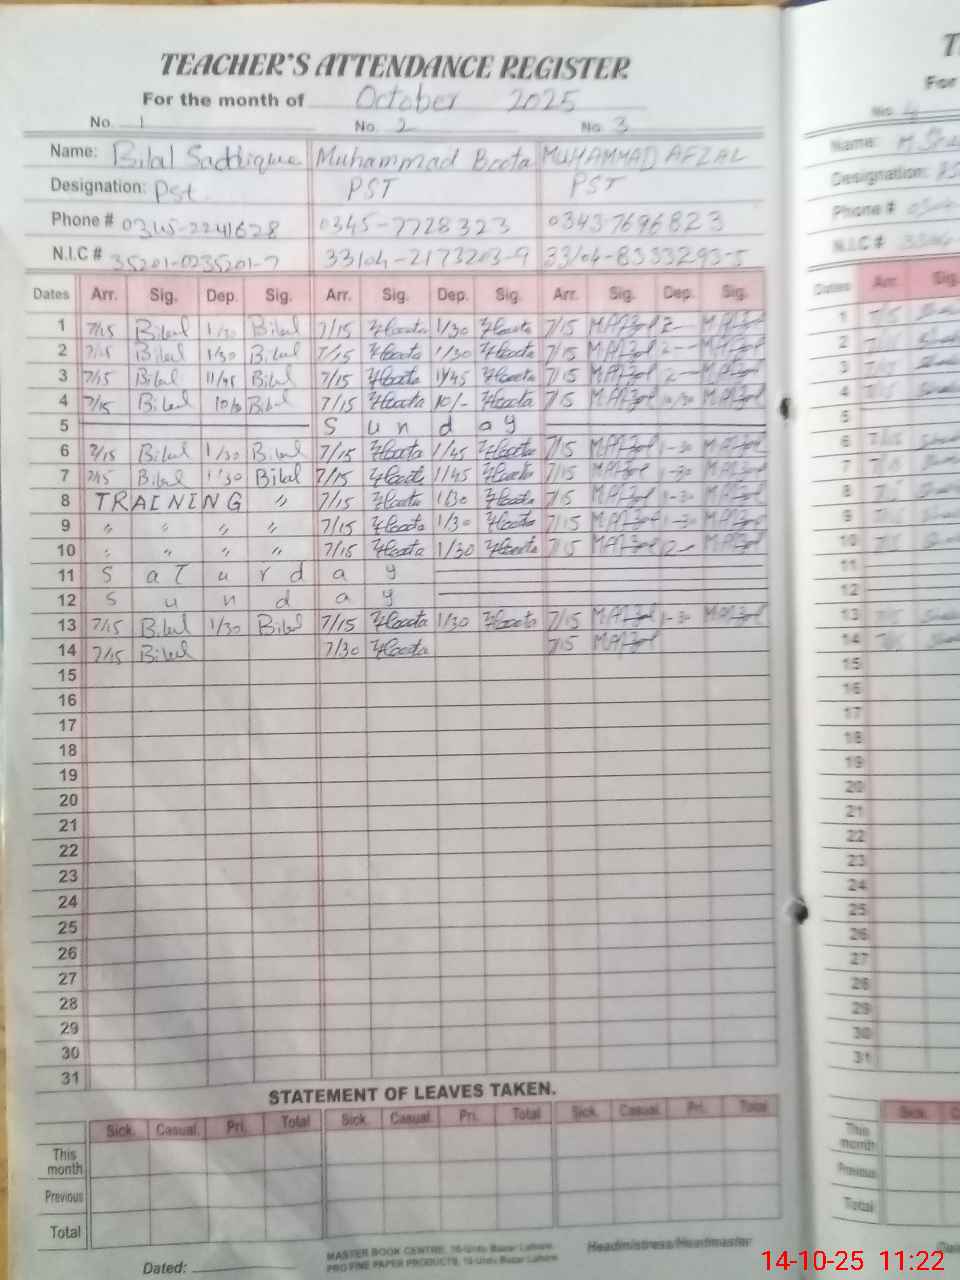 TEACHER'S ATTENDANCE REGISTER
For the month of October 2025
No. 1 No. 2 No. 3
Name: Bilal Saddique Muhammad Boota MUHAMMAD AFZAL
Designation: Pst. PST PST
Phone # 0345-2241628 0345-7728323 03437696823
N.I.C # 35201-0235201-7 33104-2173203-9 33104-8333293-5
Dates Arr. Sig. Dep. Sig. Arr. Sig. Dep. Sig. Arr. Sig. Dep. Sig.
1 7/15 Bilal 1/30 Bilal 7/15 Boota 1/30 Boota 7/15 M.Afzal 2- M.Afzal
2 7/15 Bilal 1/30 Bilal 7/15 Boota 1/30 Boota 7/15 M.Afzal 2- M.Afzal
3 7/15 Bilal 11/45 Bilal 7/15 Boota 11/45 Boota 7/15 M.Afzal 2- M.Afzal
4 7/15 Bilal Bilal 7/15 Boota 10/- Boota 7/15 M.Afzal 10/30 M.Afzal
5 Sunday
6 7/15 Bilal 1/30 Bilal 7/15 Boota 1/45 Boota 7/15 M.Afzal 1-30 M.Afzal
7 7/15 Bilal 1/30 Bilal 7/15 Boota 1/45 Boota 7/15 M.Afzal 1-30 M.Afzal
8 TRAINING " 7/15 Boota 1/30 Boota 7/15 M.Afzal 1-30 M.Afzal
9 " " " " 7/15 Boota 1/30 Boota 7/15 M.Afzal 1-30 M.Afzal
10 " " " " 7/15 Boota 1/30 Boota 7/15 M.Afzal 2- M.Afzal
11 SaTurday
12 Sunday
13 7/15 Bilal 1/30 Bilal 7/15 Boota 1/30 Boota 7/15 M.Afzal 1-30 M.Afzal
14 7/15 Bilal 7/30 Boota 7/15 M.Afzal
15
16
17
18
19
20
21
22
23
24
25
26
27
28
29
30
31
STATEMENT OF LEAVES TAKEN.
Sick. Casual. Pri. Total Sick. Casual. Pri. Total Sick. Casual. Pri. Total
This month
Previous
Total
Dated:
MASTER BOOK CENTRE, 16-Urdu Bazar Lahore.
PRO FINE PAPER PRODUCTS, 16-Urdu Bazar Lahore.
Headmistress/Headmaster
For
No. 4
Name: M.
Designation:
Phone #
N.I.C #
Dates Arr. Sig.
1
2
3
4
5
6
7
8
9
10
11
12
13
14
15
16
17
18
19
20
21
22
23
24
25
26
27
28
29
30
31
Sick.
This month
Previous
Total
14-10-25 11:22